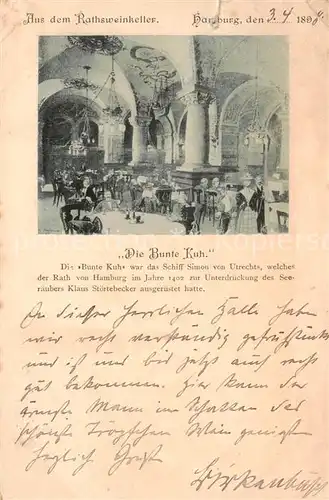 Aus dem Rathsweinkeller. Hamburg, den 3.4 189
„Die Bunte Kuh."
Die »Bunte Kuh« war das Schiff Simon von Utrechts, welches
der Rath von Hamburg im Jahre 1402 zur Unterdrückung des See-
räubers Klaus Störtebecker ausgerüstet hatte.
In dieser herrlichen Halle haben
wir recht verständig gefrühstückt
und ist uns bis jetzt auch recht
gut bekommen. Hier kann der
ärmste Mann im Schatten das
schönste Tröpfchen Wein genießen
Herzlich Grüßt